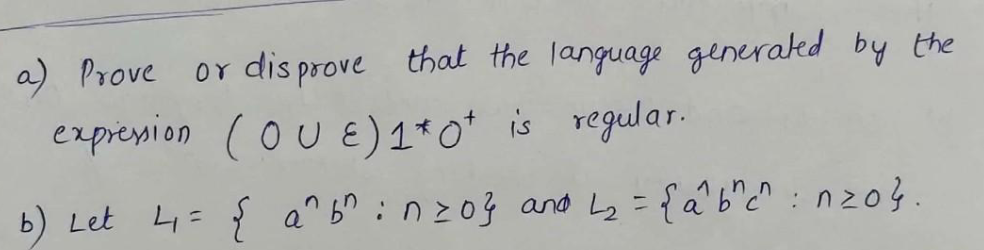 a) Prove or disprove that the language generated by the
expression (0 ∪ ε)1*0⁺ is regular.
b) Let L₁ = { aⁿbⁿ : n ≥ 0} and L₂ = {aⁿbⁿcⁿ : n ≥ 0}.